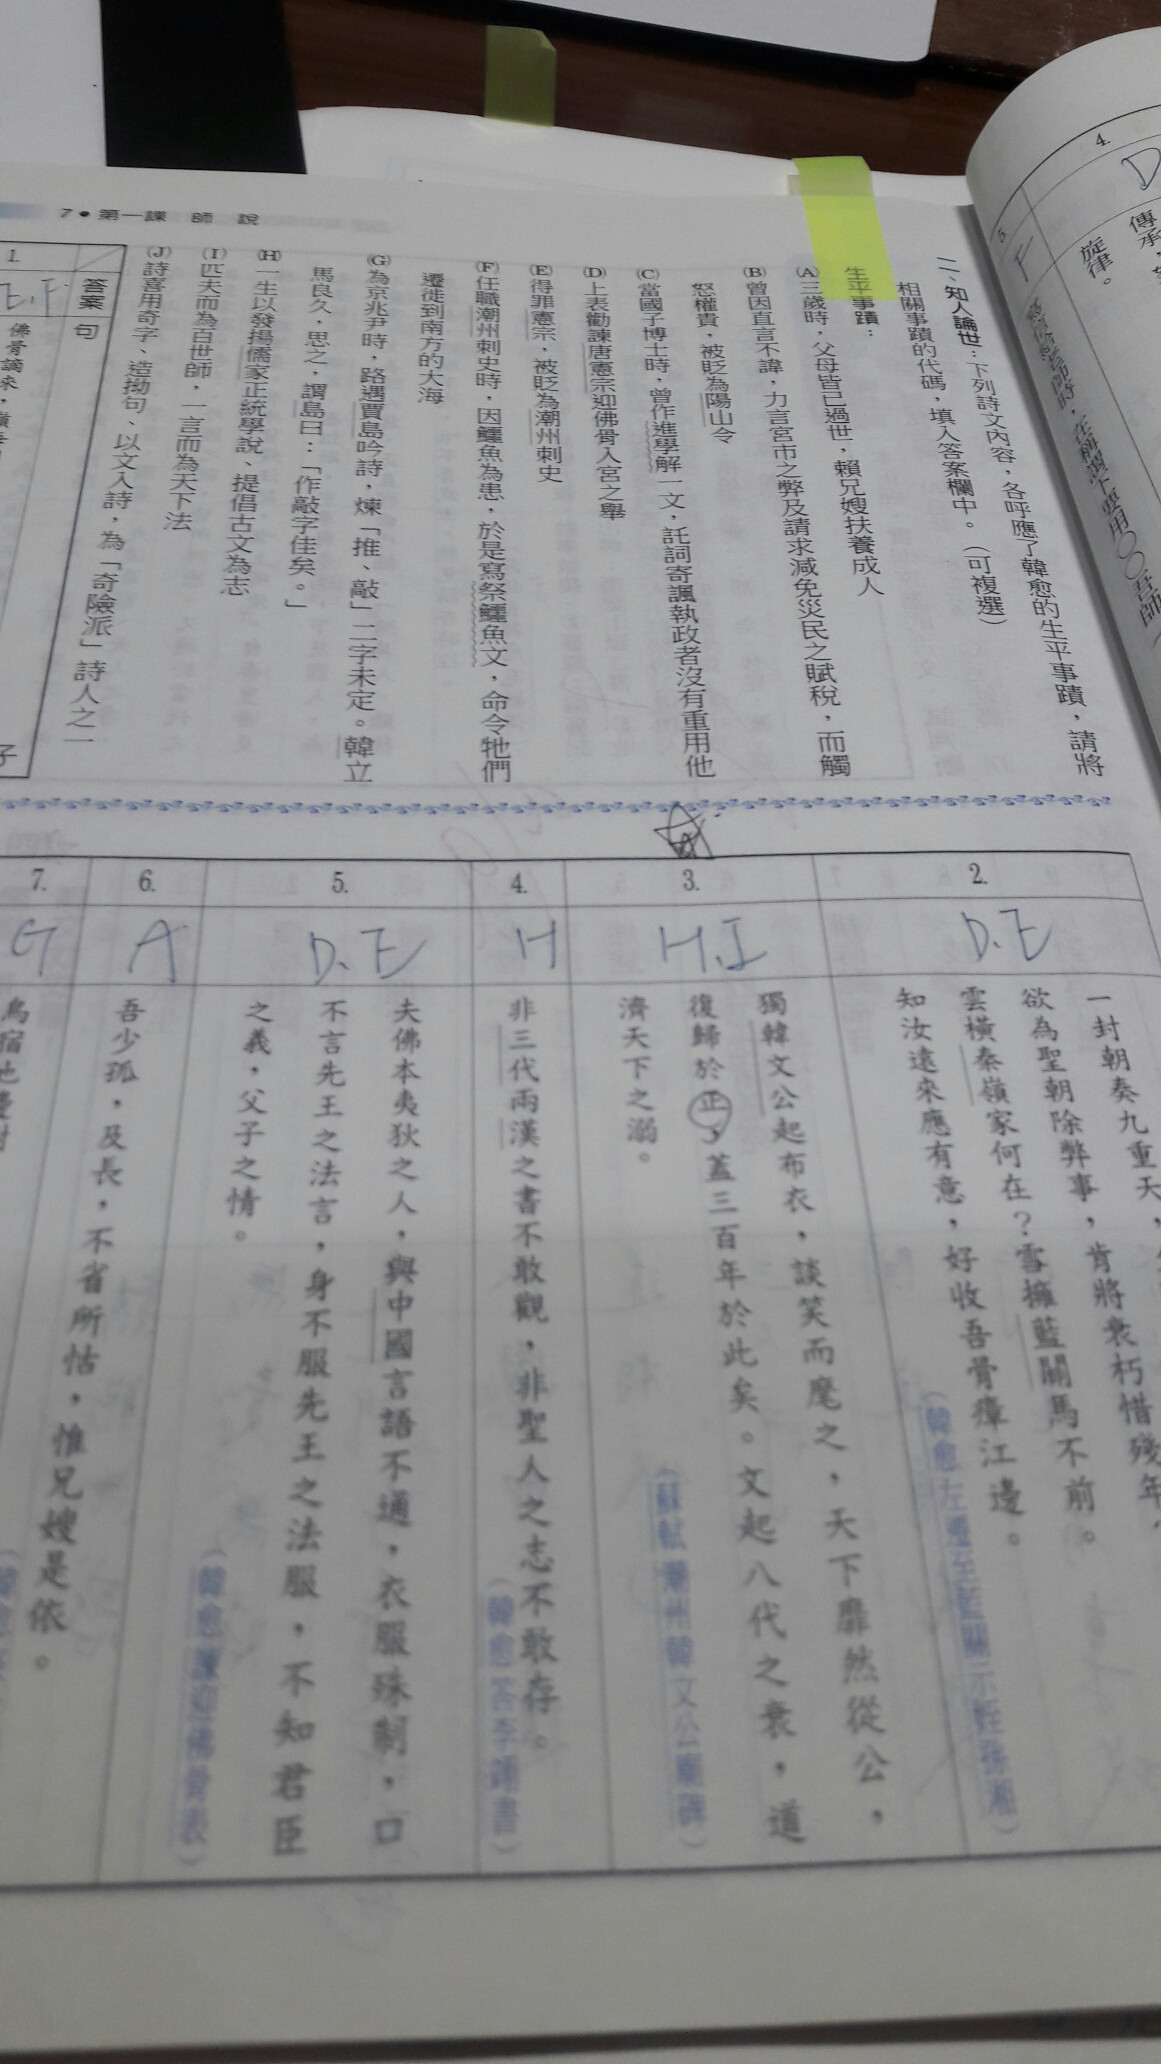 4.
D
傳承,
旋律。
5.
F
7•第一課 師 說
二、知人論世:下列詩文內容,各呼應了韓愈的生平事蹟,請將
相關事蹟的代碼,填入答案欄中。(可複選)
生平事蹟:
(A)三歲時,父母皆已過世,賴兄嫂扶養成人
(B)曾因直言不諱,力言宮市之弊及請求減免災民之賦稅,而觸
怒權貴,被貶為陽山令
(C)當國子博士時,曾作進學解一文,託詞寄諷執政者沒有重用他
(D)上表勸諫唐憲宗迎佛骨入宮之舉
(E)得罪憲宗,被貶為潮州刺史
(F)任職潮州刺史時,因鱷魚為患,於是寫祭鱷魚文,命令牠們
遷徙到南方的大海
(G)為京兆尹時,路遇賈島吟詩,煉「推、敲」二字未定。韓立
馬良久,思之,謂島曰:「作敲字佳矣。」
(H)一生以發揚儒家正統學說、提倡古文為志
(I)匹夫而為百世師,一言而為天下法
(J)詩喜用奇字、造拗句、以文入詩,為「奇險派」詩人之一
答案
句
子
1.
E.F
佛骨謫來,
2.
D.E
一封朝奏九重天,
欲為聖朝除弊事,肯將衰朽惜殘年,
雲橫秦嶺家何在?雪擁藍關馬不前。
知汝遠來應有意,好收吾骨瘴江邊。
(韓愈左遷至藍關示姪孫湘)
3.
H.I
獨韓文公起布衣,談笑而麾之,天下靡然從公,
復歸於正,蓋三百年於此矣。文起八代之衰,道
濟天下之溺。
(蘇軾潮州韓文公廟碑)
4.
H
非三代兩漢之書不敢觀,非聖人之志不敢存。
(韓愈答李翊書)
5.
D.E
夫佛本夷狄之人,與中國言語不通,衣服殊制,口
不言先王之法言,身不服先王之法服,不知君臣
之義,父子之情。
(韓愈諫迎佛骨表)
6.
A
吾少孤,及長,不省所怙,惟兄嫂是依。
7.
G
鳥宿池邊樹